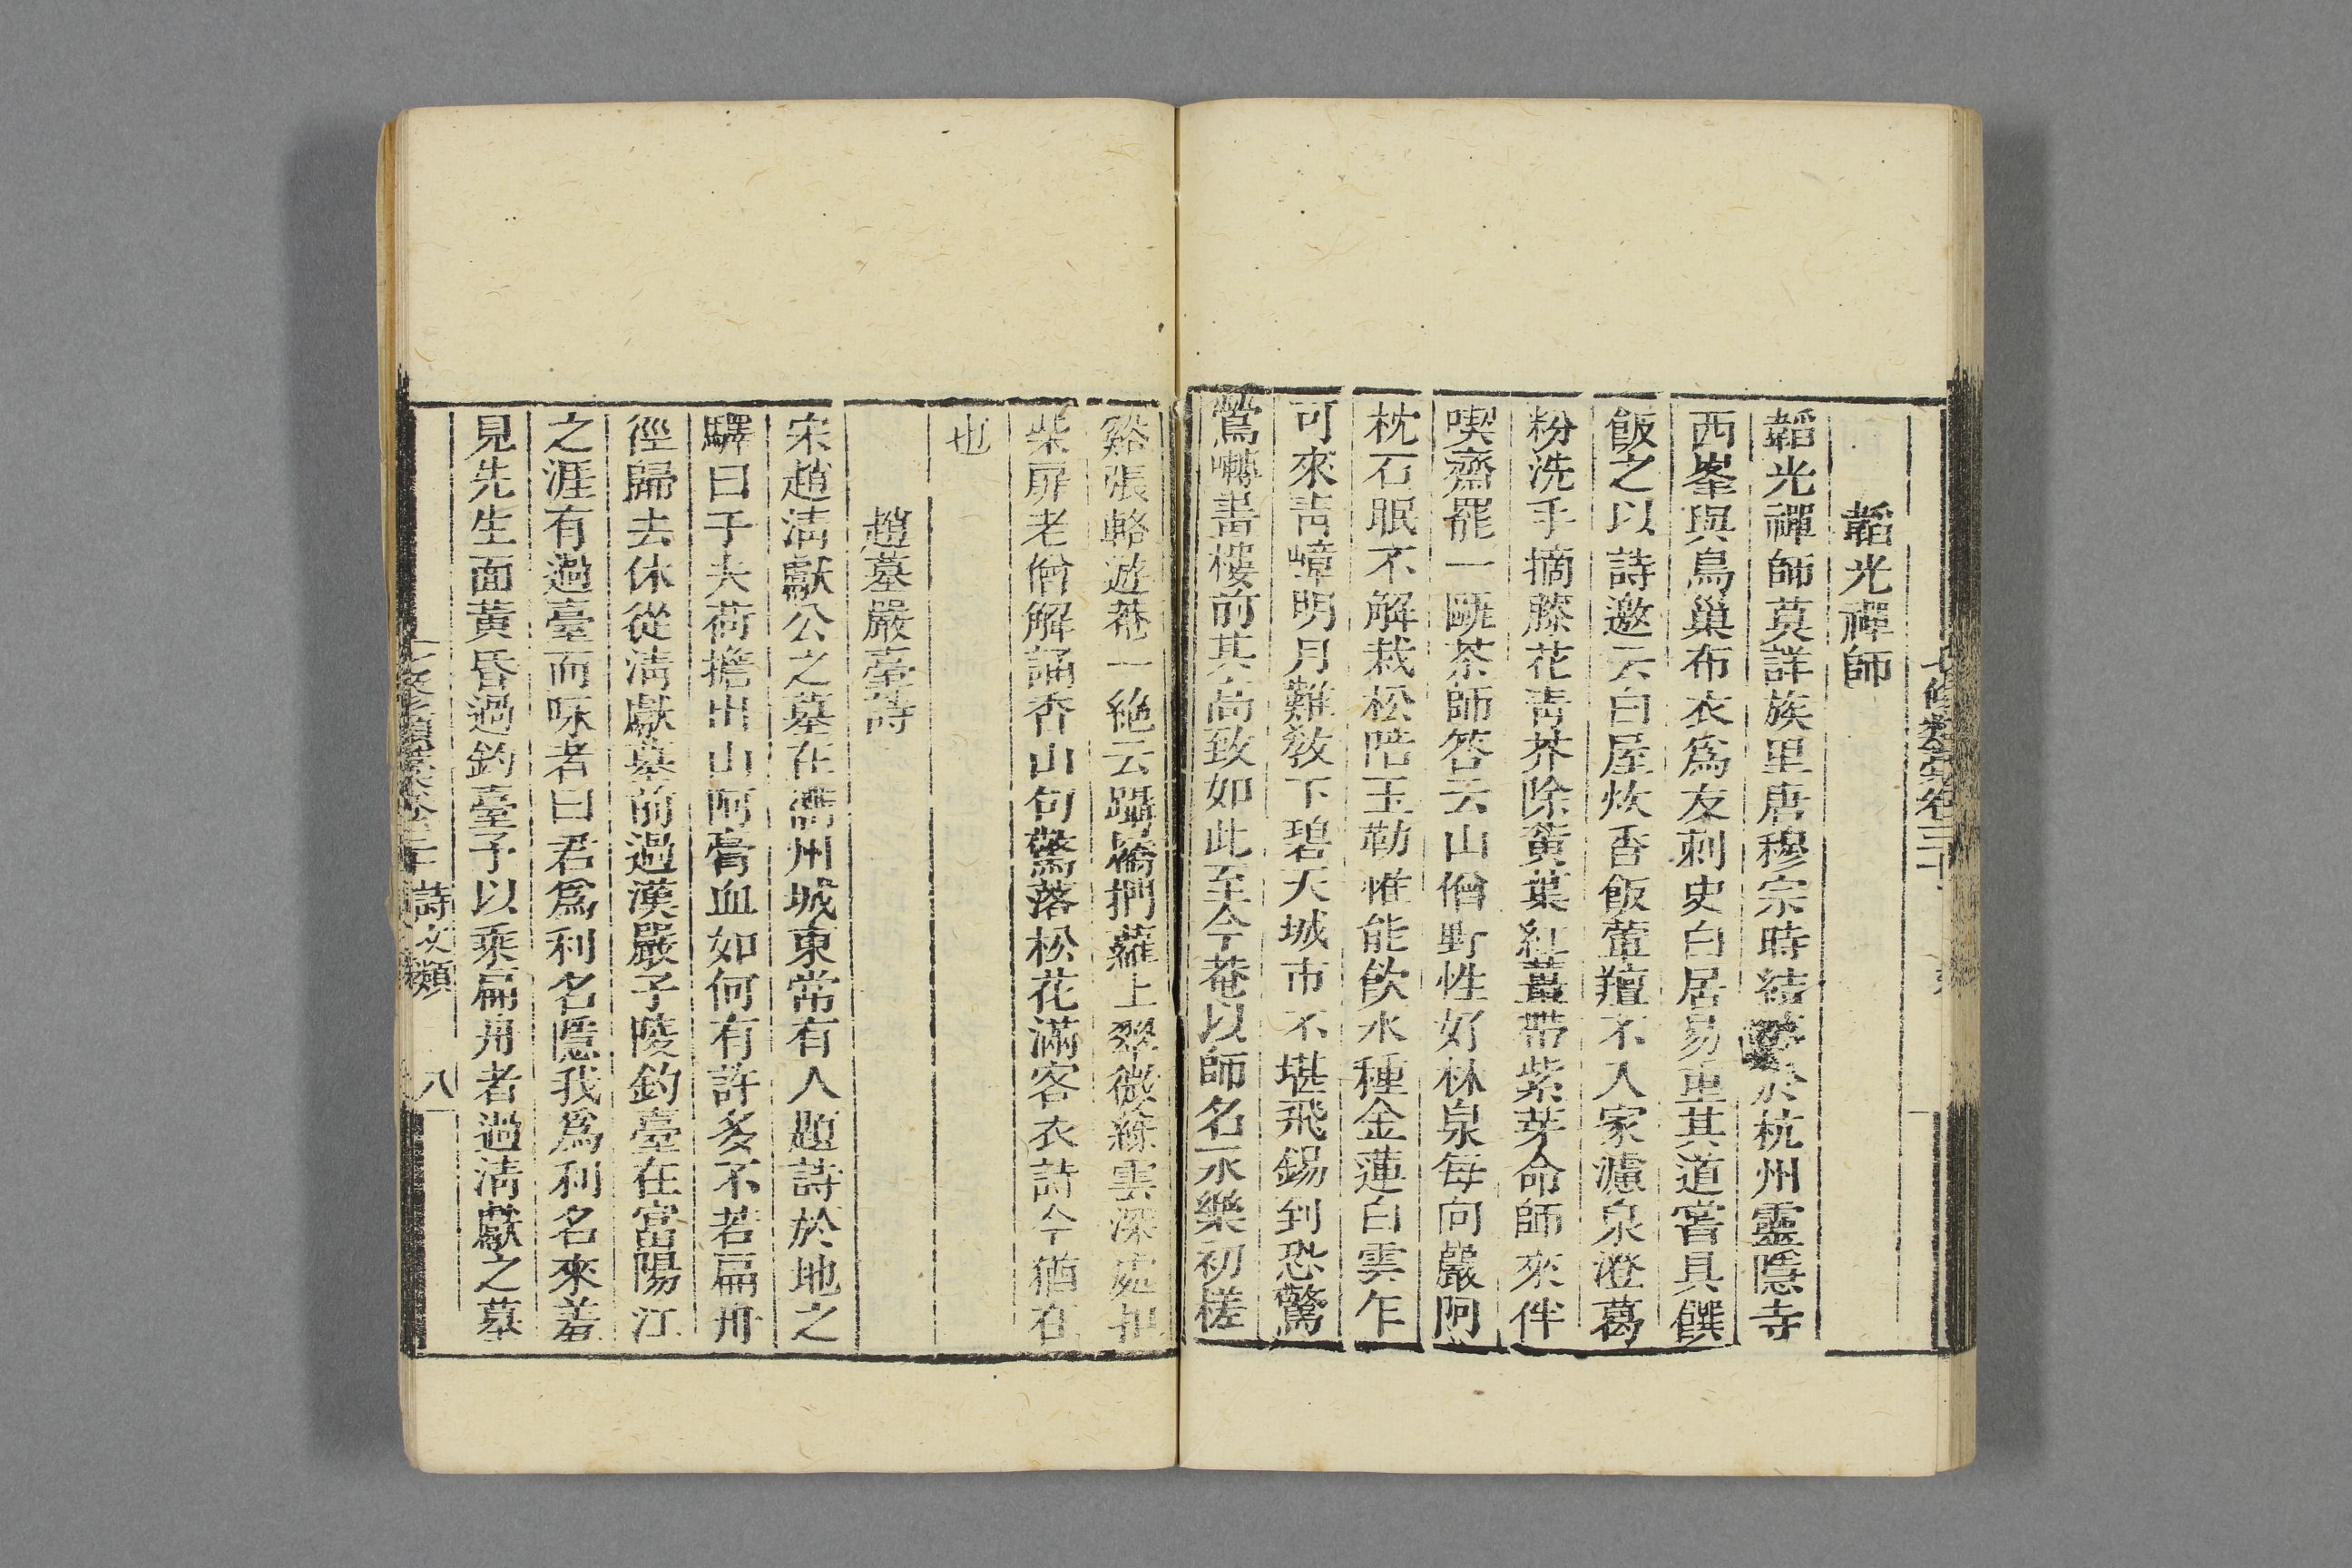 韜光禪師
韜光禪師莫詳族里唐穆宗時結於杭州靈隱寺
西峯與鳥巢布衣爲友刺史白居易重其道嘗具饌
飯之以詩邀云白屋炊香飯葷羶不入家濾泉澄葛
粉洗手摘藤花靑芥除黄葉紅薑帶紫芽命師來伴
喫齋罷一甌茶師答云山僧野性好林泉每向巖阿
枕石眠不解栽松陪玉勒惟能飲水種金蓮白雲乍
可來靑嶂明月難敎下碧天城市不堪飛錫到恐驚
鶯囀畫樓前其高致如此至今菴以師名永樂初槎
谿張輅遊菴一絶云躡嶠捫蘿上翠微綠雲深處扣
柴扉老僧解誦香山句驚落松花滿客衣詩今猶在
也
趙墓嚴臺詩
宋趙淸獻公之墓在衢州城東常有人題詩於地之
驛曰于夫荷擔出山阿膏血如何有許多不若扁舟
徑歸去休從淸獻墓前過漢嚴子陵釣臺在富陽江
之涯有過臺而咏者曰君爲利名隱我爲利名來羞
見先生面黄昏過釣臺予以乘扁舟者過淸獻之墓
七修類藁卷三十 詩文類 八